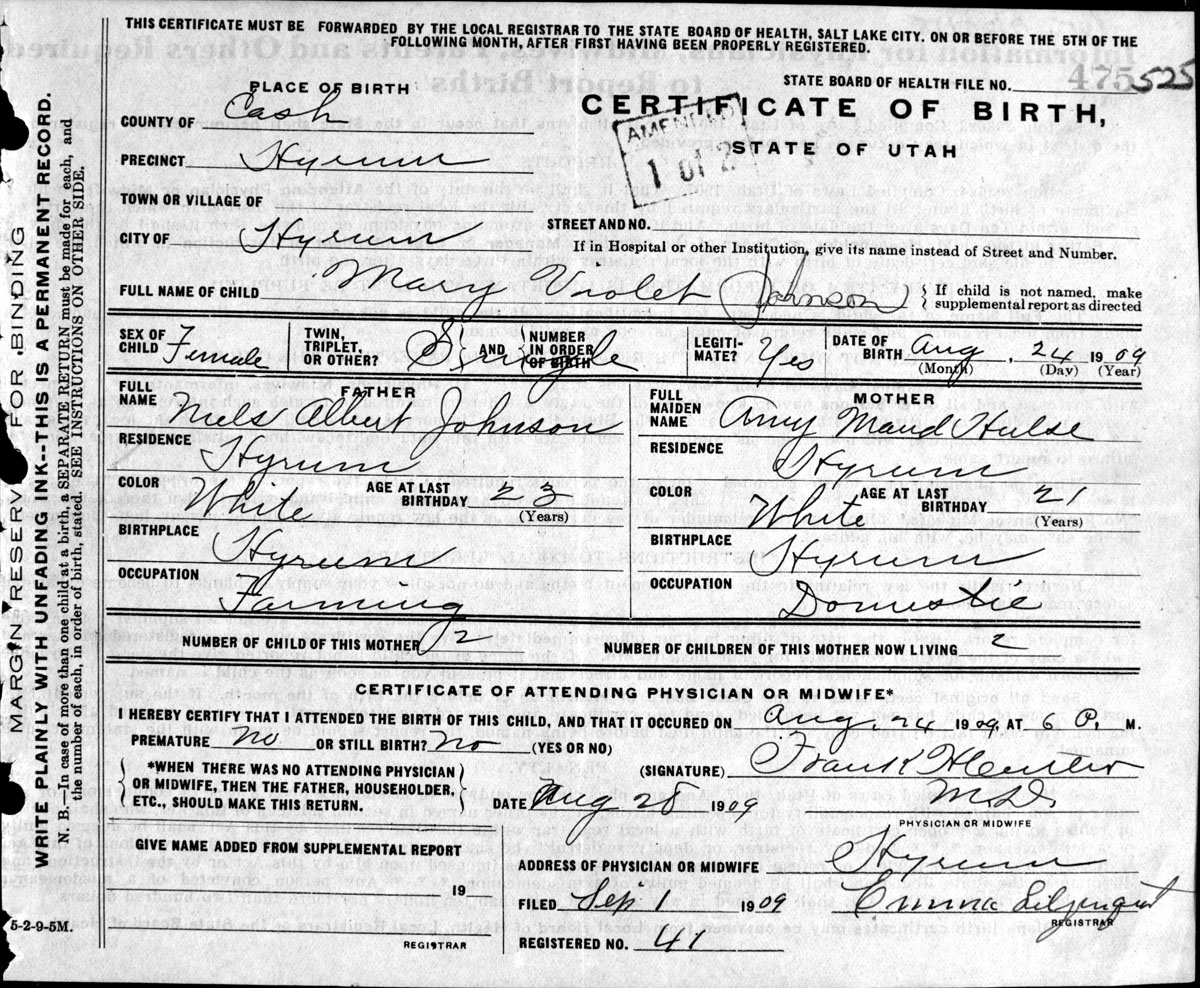 THIS CERTIFICATE MUST BE FORWARDED BY THE LOCAL REGISTRAR TO THE STATE BOARD OF HEALTH, SALT LAKE CITY. ON OR BEFORE THE 5TH OF THE
FOLLOWING MONTH, AFTER FIRST HAVING BEEN PROPERLY REGISTERED.
STATE BOARD OF HEALTH FILE NO. 475 525
PLACE OF BIRTH
CERTIFICATE OF BIRTH,
STATE OF UTAH
AMENDED
1 OF 2
COUNTY OF Cash
PRECINCT Hyrum
TOWN OR VILLAGE OF
STREET AND NO.
CITY OF Hyrum
If in Hospital or other Institution, give its name instead of Street and Number.
FULL NAME OF CHILD Mary Violet (Johnson)
If child is not named, make
supplemental report as directed
SEX OF CHILD Female
TWIN, TRIPLET, OR OTHER? Single
AND NUMBER IN ORDER OF BIRTH
LEGITI-MATE? Yes
DATE OF BIRTH Aug, 24 1909
(Month) (Day) (Year)
FATHER
FULL NAME Niels Albert Johnson
RESIDENCE Hyrum
COLOR White AGE AT LAST BIRTHDAY 23
(Years)
BIRTHPLACE Hyrum
OCCUPATION Farming
MOTHER
FULL MAIDEN NAME Amy Maud Hulse
RESIDENCE Hyrum
COLOR White AGE AT LAST BIRTHDAY 21
(Years)
BIRTHPLACE Hyrum
OCCUPATION Domestic
NUMBER OF CHILD OF THIS MOTHER 2
NUMBER OF CHILDREN OF THIS MOTHER NOW LIVING 2
CERTIFICATE OF ATTENDING PHYSICIAN OR MIDWIFE*
I HEREBY CERTIFY THAT I ATTENDED THE BIRTH OF THIS CHILD, AND THAT IT OCCURED ON Aug. 24 1909, AT 6 P. M.
PREMATURE no OR STILL BIRTH? no (YES OR NO)
*WHEN THERE WAS NO ATTENDING PHYSICIAN
OR MIDWIFE, THEN THE FATHER, HOUSEHOLDER,
ETC., SHOULD MAKE THIS RETURN.
(SIGNATURE) Frank
M.D.
DATE Aug 28 1909
PHYSICIAN OR MIDWIFE
GIVE NAME ADDED FROM SUPPLEMENTAL REPORT
19
REGISTRAR
ADDRESS OF PHYSICIAN OR MIDWIFE Hyrum
FILED Sep 1 1909 Emma Liljenquist
REGISTRAR
REGISTERED NO. 41
MARGIN RESERVED FOR BINDING
WRITE PLAINLY WITH UNFADING INK--THIS IS A PERMANENT RECORD.
N. B.—In case of more than one child at a birth, a SEPARATE RETURN must be made for each, and
the number of each, in order of birth, stated. SEE INSTRUCTIONS ON OTHER SIDE.
5-2-9-5M.